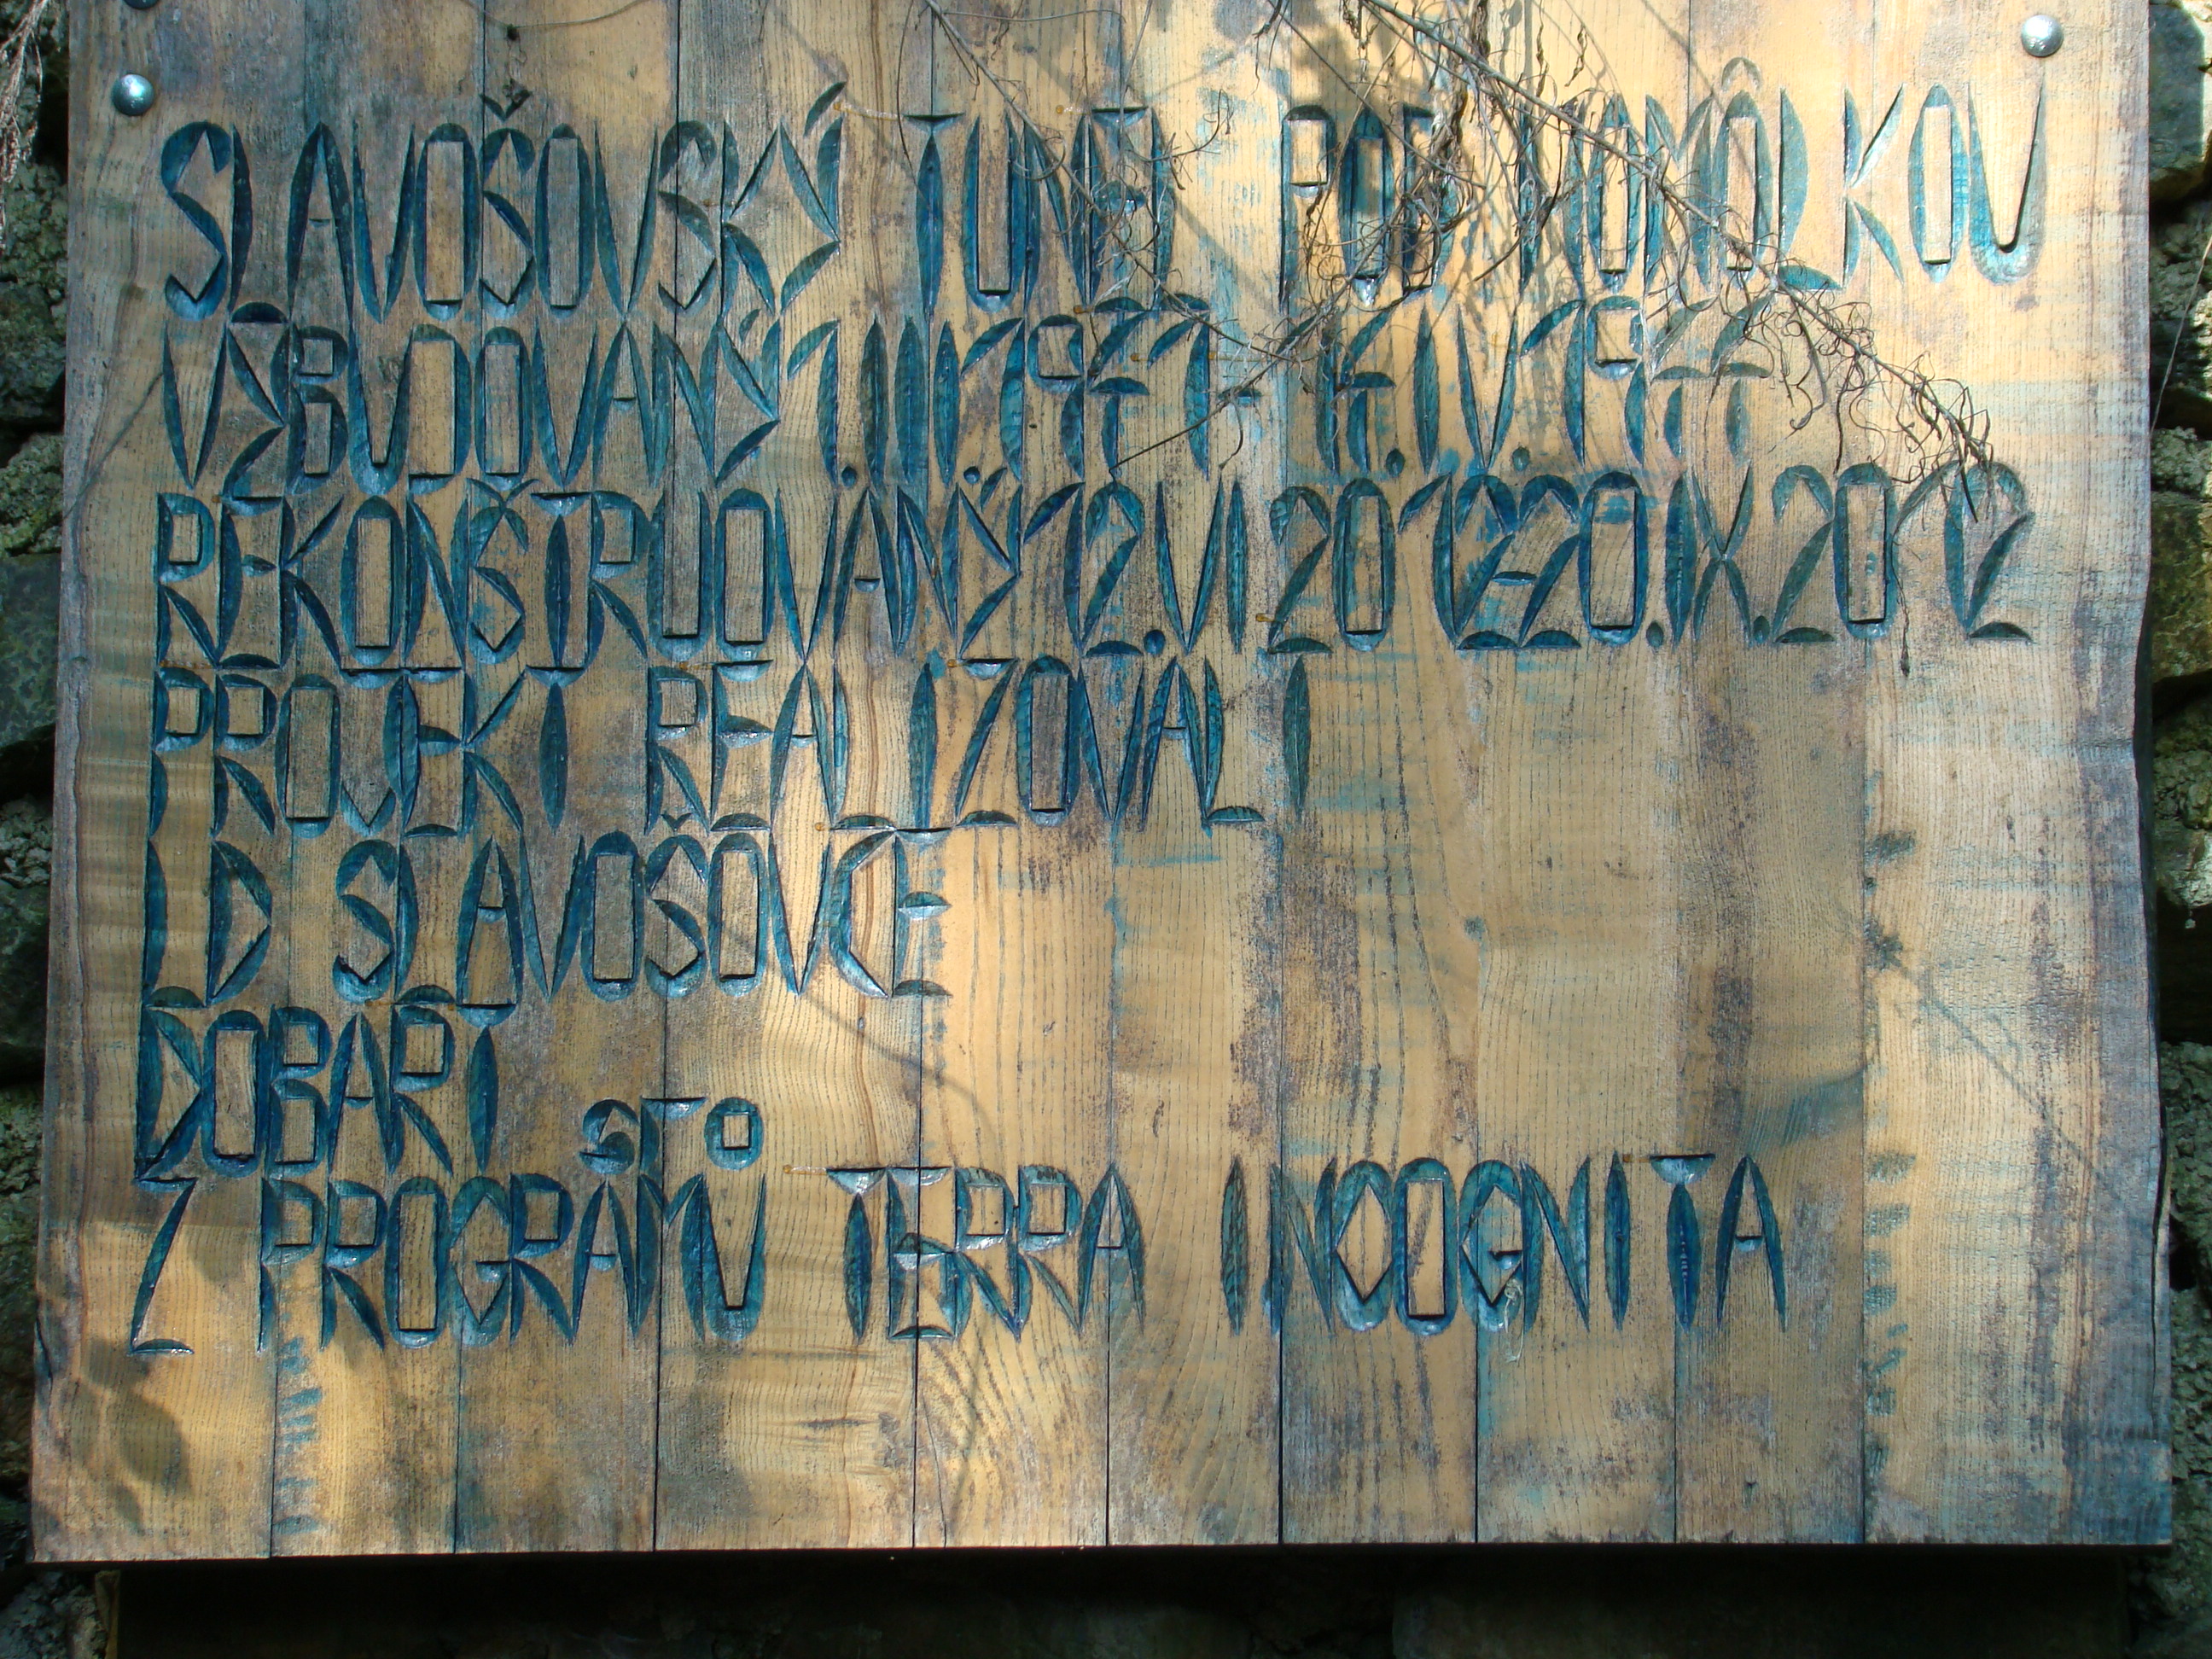 SLAVOŠOVSKÝ TUNEL POD HOMÔLKOU
VYBUDOVANÝ 1.III.1941 - 14.IV.1944
REKONŠTRUOVANÝ 12.VI 2012-20.IX.2012
PROJEKT REALIZOVALI
LD SLAVOŠOVCE
DOBARI STO
Z PROGRAMU TERRA INCOGNITA